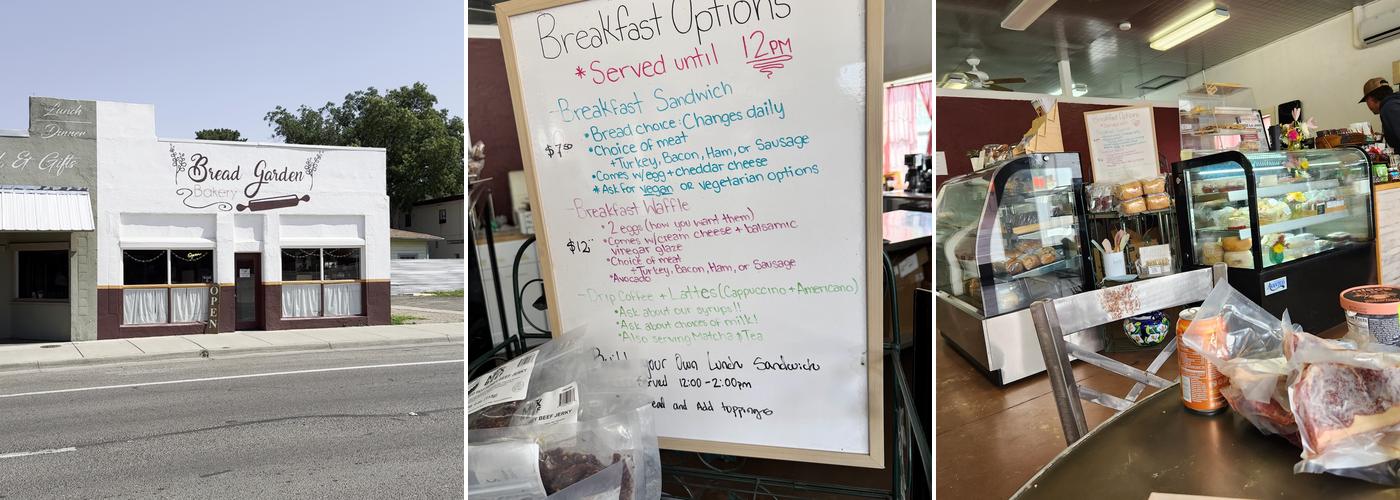 Lunch
Dinner
& Gifts
Bread Garden
Bakery
OPEN
Breakfast Options
*Served until 12PM
-Breakfast Sandwich
•Bread choice: Changes daily
$7.50
•Choice of meat
+Turkey, Bacon, Ham, or Sausage
•Comes w/egg + cheddar cheese
*Ask for vegan or vegetarian options
-Breakfast Waffle
•2 eggs (how you want them)
$12
•Comes w/cream cheese + balsamic
vinegar glaze
•Choice of meat
+Turkey, Bacon, Ham, or Sausage
•Avocado
-Drip Coffee + Lattes (Cappuccino + Americano)
•Ask about our syrups!!
•Ask about choices of milk!
•Also serving Matcha & Tea
Build your Own Lunch Sandwich
12:00-2:00pm
and Add toppings
BEEF JERKY
BEEF JERKY
Breakfast Options